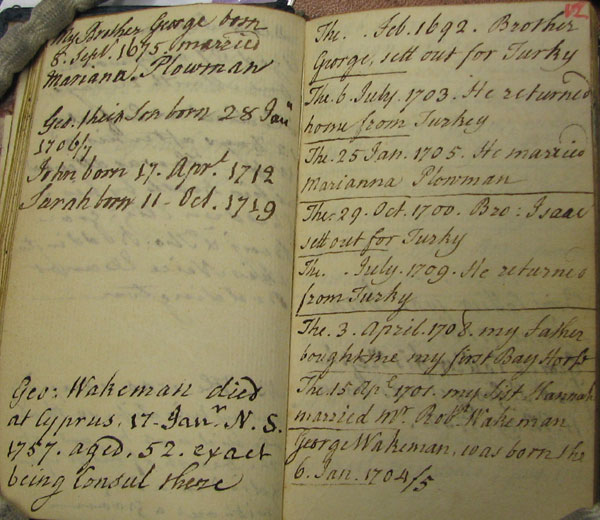 My Brother George born
8. Sept. 1675. married
Mariana. Plowman
Geo. their Son born 28 Jan.ry
1706/7
John born 17. Apr.l 1712
Sarah born 11. Oct. 1719
Geo: Wakeman died
at Cyprus. 17. Jan.ry N. S.
1757. aged. 52. exact
being Consul there
12
The. . Feb. 1692. Brother
George, sett out for Turky
The. 6 July. 1703. He returned
home from Turkey
The. 25 Jan. 1705. He married
Marianna Plowman
The 29. Oct. 1700. Bro: Isaac
sett out for Turky
The. . July. 1709. He returned
from Turky
The. 3. April. 1708. my Father
bought me my first Bay Horse
The. 15 Ap.l 1701. my Sist Hannah
married Mr. Rob.t Wakeman
George Wakeman, was born the
6. Jan. 1704/5